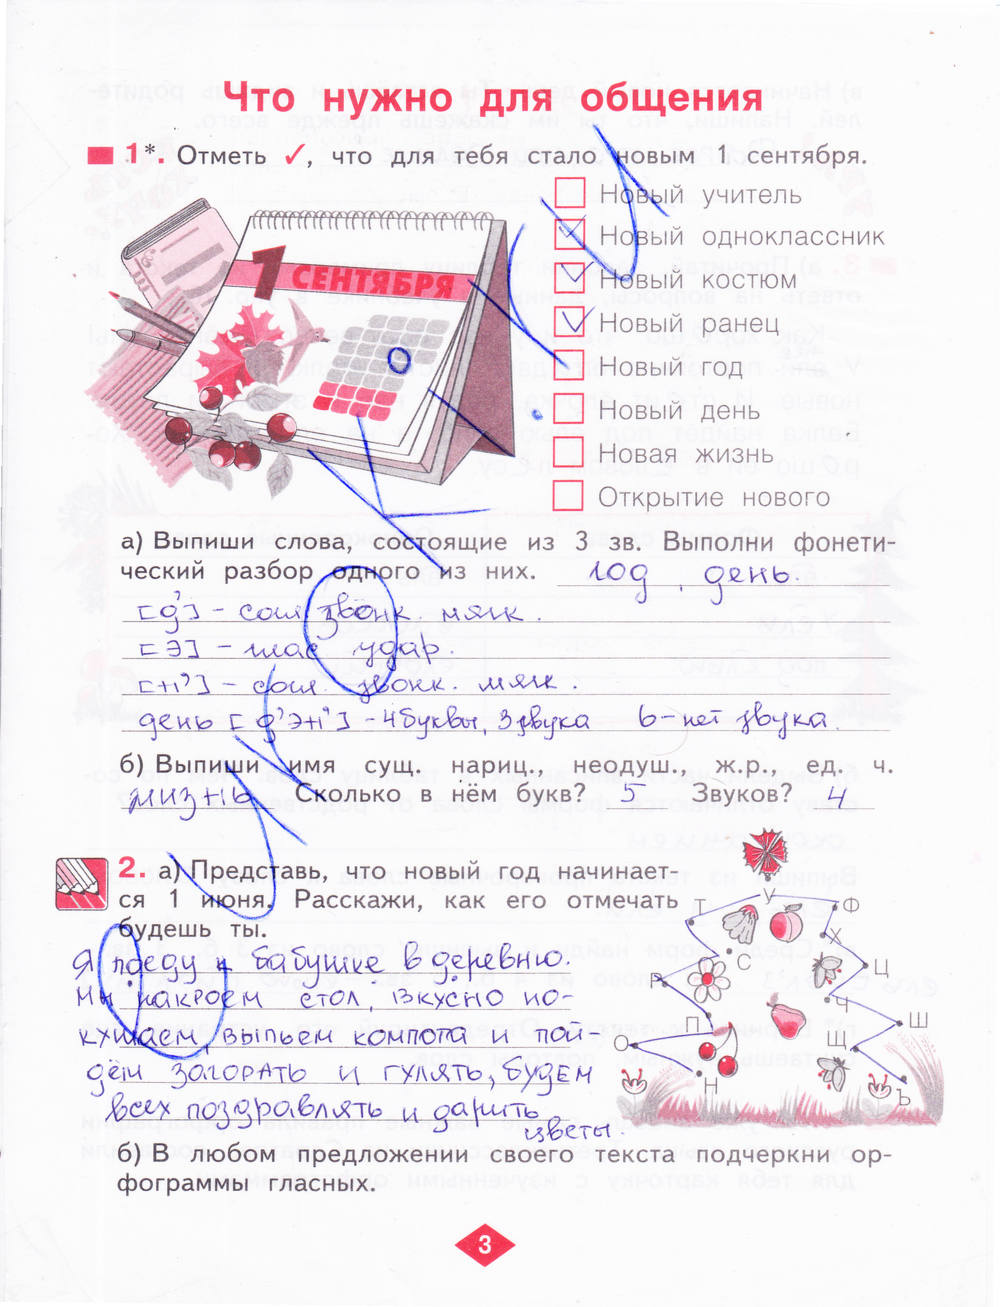 Что нужно для общения
1*. Отметь ✓, что для тебя стало новым 1 сентября.
Новый учитель
Новый одноклассник
Новый костюм
Новый ранец
Новый год
Новый день
Новая жизнь
Открытие нового
1 СЕНТЯБРЯ
а) Выпиши слова, состоящие из 3 зв. Выполни фонети-
ческий разбор одного из них. год, день.
[д'] - согл. звонк. мягк.
[э] - глас. удар.
[н'] - согл. звонк. мягк.
день [д'эн'] - 4 буквы, 3 звука ь - нет звука.
б) Выпиши имя сущ. нариц., неодуш., ж.р., ед. ч.
жизнь Сколько в нём букв? 5 Звуков? 4
2. а) Представь, что новый год начинает-
ся 1 июня. Расскажи, как его отмечать
будешь ты.
Я поеду к бабушке в деревню.
Мы накроем стол вкусно по-
кушаем, выпьем компота и пой-
дём загорать и гулять, будем
всех поздравлять и дарить
цветы
Т У Ф
С Х
Р Ц
П Ч
О Щ Ш
Н Ъ
б) В любом предложении своего текста подчеркни ор-
фограммы гласных.
3